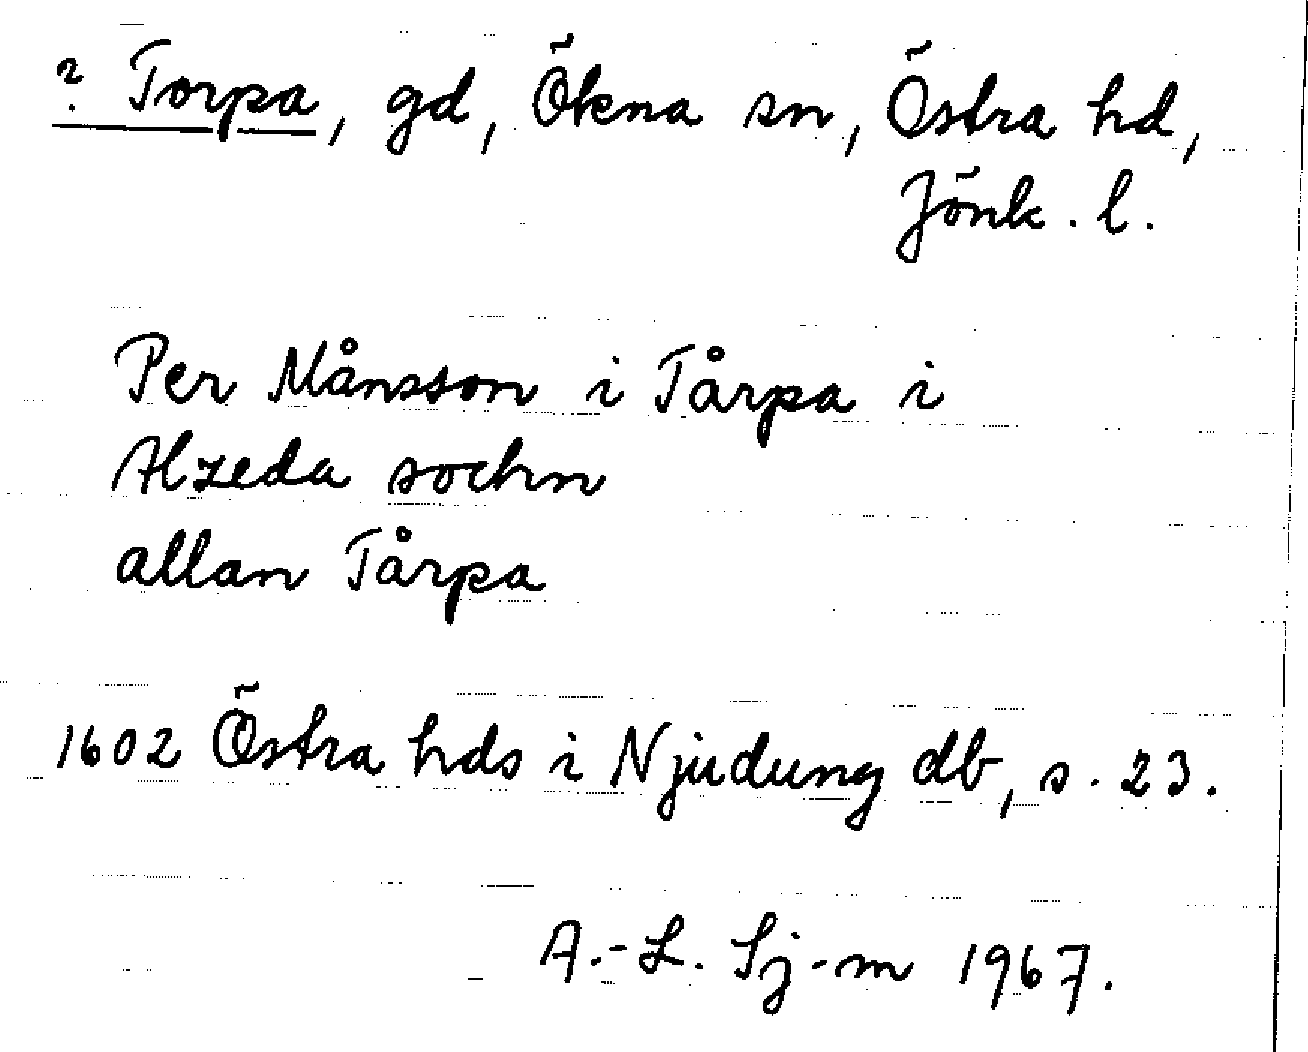 ? Torpa, gd, Ökna sn, Östra hd,
Jönk. l.
Per Månsson i Tårpa i
Alzeda sochn
allan Tårpa
1602 Östra hds i Njudung db, s. 23.
A.-L. Sj-m 1967.